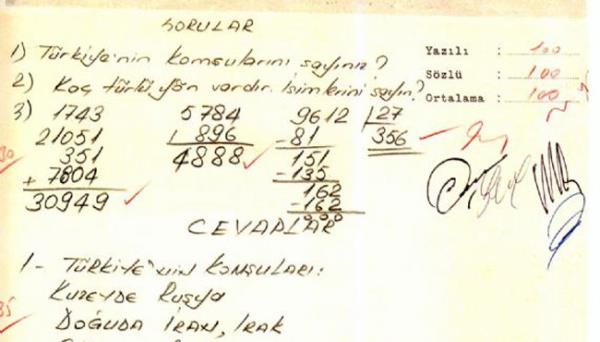 SORULAR
1) Türkiye'nin komşularını sayınız?
2) Kaç türlü yön vardır. İsimlerini sayın?
Yazılı : 100
Sözlü : 100
Ortalama : 100
3) 1743 5784 9612 27
21051 896 -81 356
351 4888 151
+ 7804 -135
30949 162
-162
000
CEVAPLAR
1- TÜRKİYE'NİN KOMŞULARI:
KUZEYDE RUSYA
DOĞUDA İRAN, IRAK